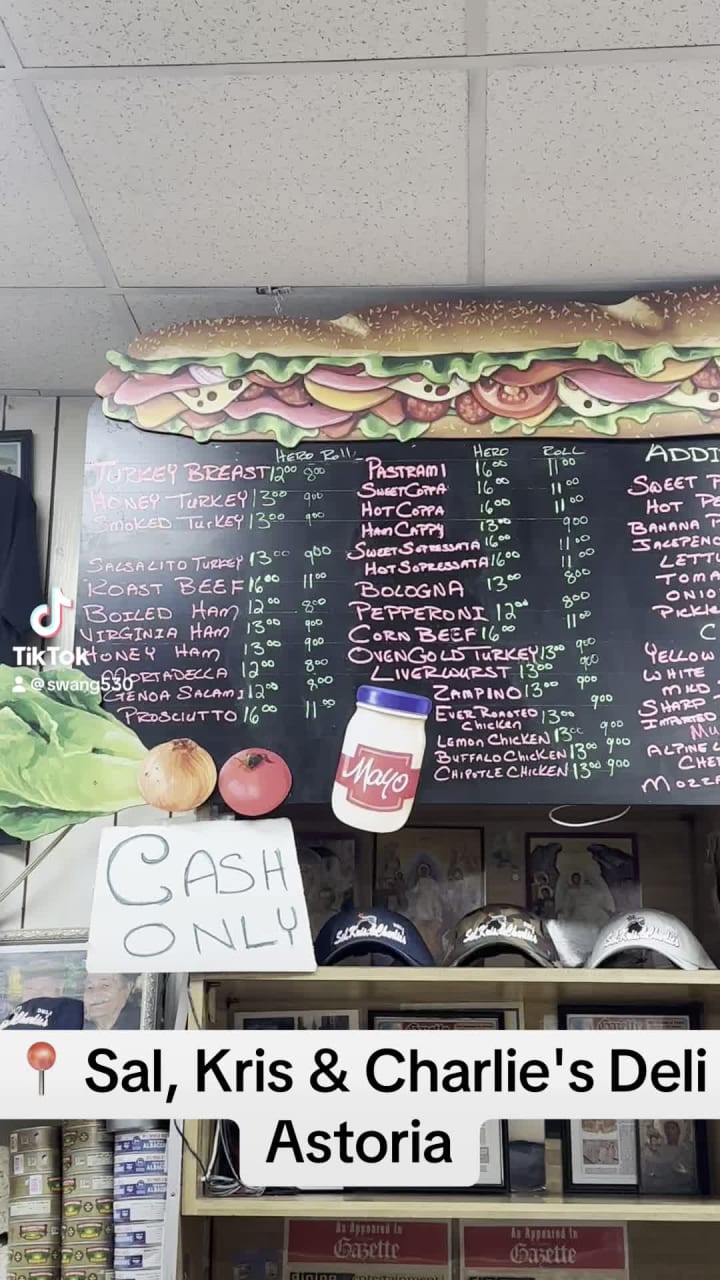 HERO ROLL
TURKEY BREAST 12⁰⁰ 8⁰⁰
HONEY TURKEY 13⁰⁰ 9⁰⁰
SMOKED TURKEY 13⁰⁰ 9⁰⁰
SALSALITO TURKEY 13⁰⁰ 9⁰⁰
ROAST BEEF 16⁰⁰ 11⁰⁰
BOILED HAM 12⁰⁰ 8⁰⁰
VIRGINIA HAM 13⁰⁰ 9⁰⁰
HONEY HAM 13⁰⁰ 9⁰⁰
MORTADELLA 12⁰⁰ 8⁰⁰
GENOA SALAMI 12⁰⁰ 8⁰⁰
PROSCIUTTO 16⁰⁰ 11⁰⁰
HERO ROLL
PASTRAMI 16⁰⁰ 11⁰⁰
SWEET COPPA 16⁰⁰ 11⁰⁰
HOT COPPA 16⁰⁰ 11⁰⁰
HAM CAPPY 13⁰⁰ 9⁰⁰
SWEET SOPRESSATA 16⁰⁰ 11⁰⁰
HOT SOPRESSATA 16⁰⁰ 11⁰⁰
BOLOGNA 13⁰⁰ 8⁰⁰
PEPPERONI 12⁰⁰ 8⁰⁰
CORN BEEF 16⁰⁰ 11⁰⁰
OVENGOLD TURKEY 13⁰⁰ 9⁰⁰
LIVERWURST 13⁰⁰ 9⁰⁰
ZAMPINO 13⁰⁰ 9⁰⁰
EVER ROASTED
CHICKEN 13⁰⁰ 9⁰⁰
LEMON CHICKEN 13⁰⁰ 9⁰⁰
BUFFALO CHICKEN 13⁰⁰ 9⁰⁰
CHIPOTLE CHICKEN 13⁰⁰ 9⁰⁰
ADDI
SWEET P
HOT PE
BANANA P
JALEPENO
LETTU
TOMA
ONIO
PICKLE
C
YELLOW
WHITE
MILD
SHARP
IMPORTED
MU
ALPINE L
CHE
MOZZA
TikTok
@swang530
Mayo
CASH
ONLY
Sal, Kris & Charlie's
Sal, Kris & Charlie's
Sal, Kris & Charlie's
DELI
Charlie's
Gazette
Gazette
Sal, Kris & Charlie's Deli
Astoria
ALBACORE
As Appeared In
Gazette
As Appeared In
Gazette